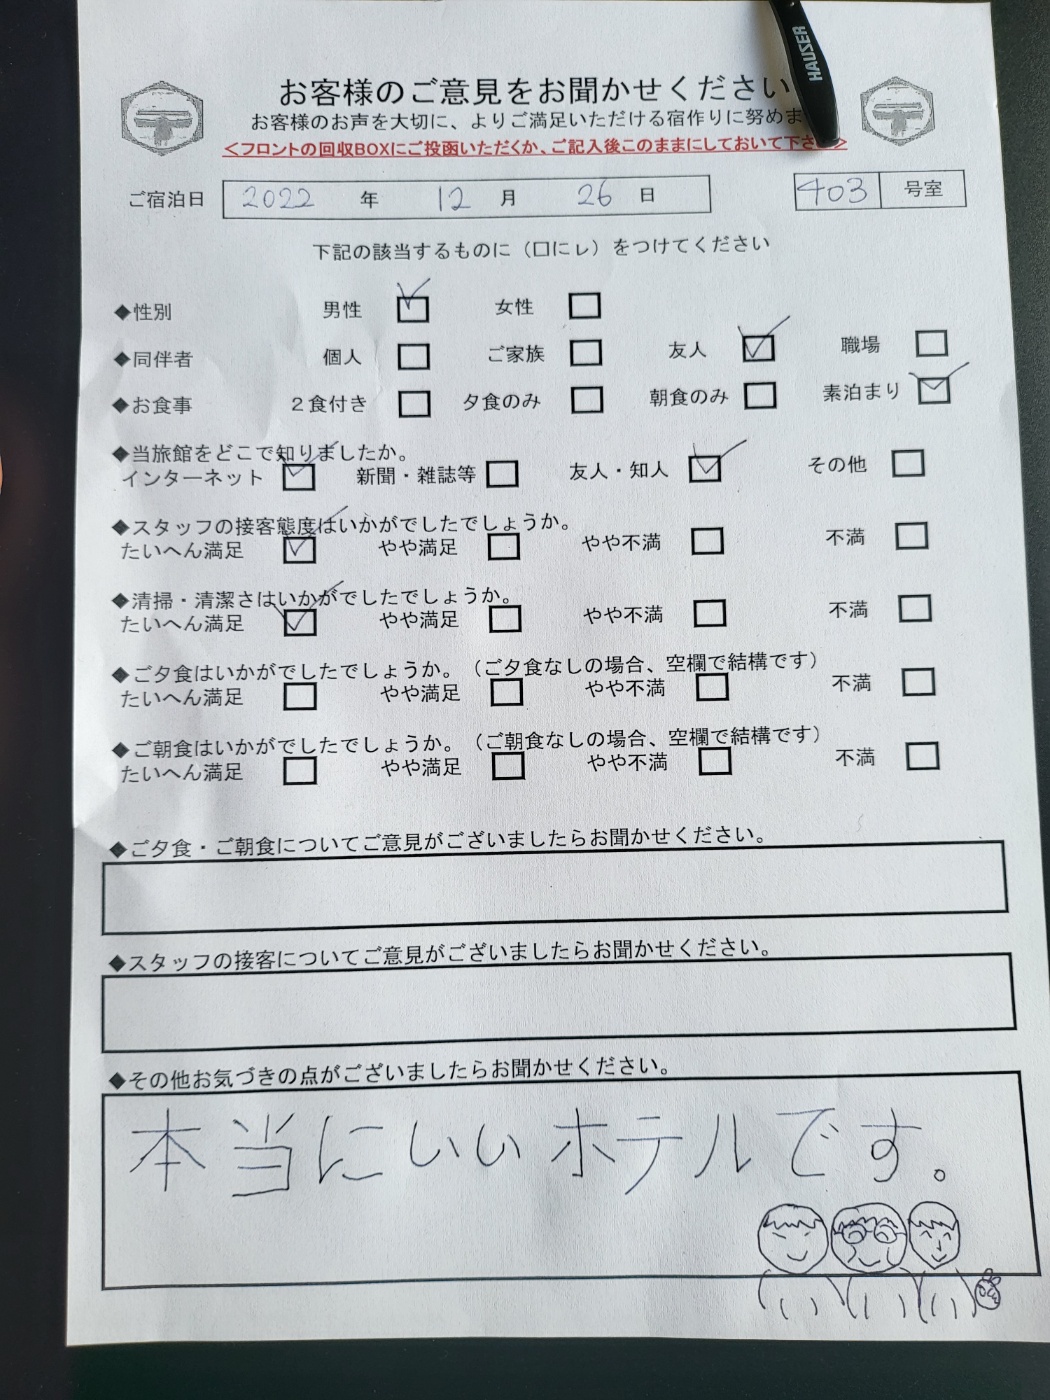 HAUSER
お客様のご意見をお聞かせください
お客様のお声を大切に、よりご満足いただける宿作りに努めま
<フロントの回収BOXにご投函いただくか、ご記入後このままにしておいて下さ>
ご宿泊日 2022 年 12 月 26 日 403 号室
下記の該当するものに（口にレ）をつけてください
◆性別 男性 女性
◆同伴者 個人 ご家族 友人 職場
◆お食事 2食付き 夕食のみ 朝食のみ 素泊まり
◆当旅館をどこで知りましたか。
インターネット 新聞・雑誌等 友人・知人 その他
◆スタッフの接客態度はいかがでしたでしょうか。
たいへん満足 やや満足 やや不満 不満
◆清掃・清潔さはいかがでしたでしょうか。
たいへん満足 やや満足 やや不満 不満
◆ご夕食はいかがでしたでしょうか。（ご夕食なしの場合、空欄で結構です）
たいへん満足 やや満足 やや不満 不満
◆ご朝食はいかがでしたでしょうか。（ご朝食なしの場合、空欄で結構です）
たいへん満足 やや満足 やや不満 不満
◆ご夕食・ご朝食についてご意見がございましたらお聞かせください。
◆スタッフの接客についてご意見がございましたらお聞かせください。
◆その他お気づきの点がございましたらお聞かせください。
本当にいいホテルです。